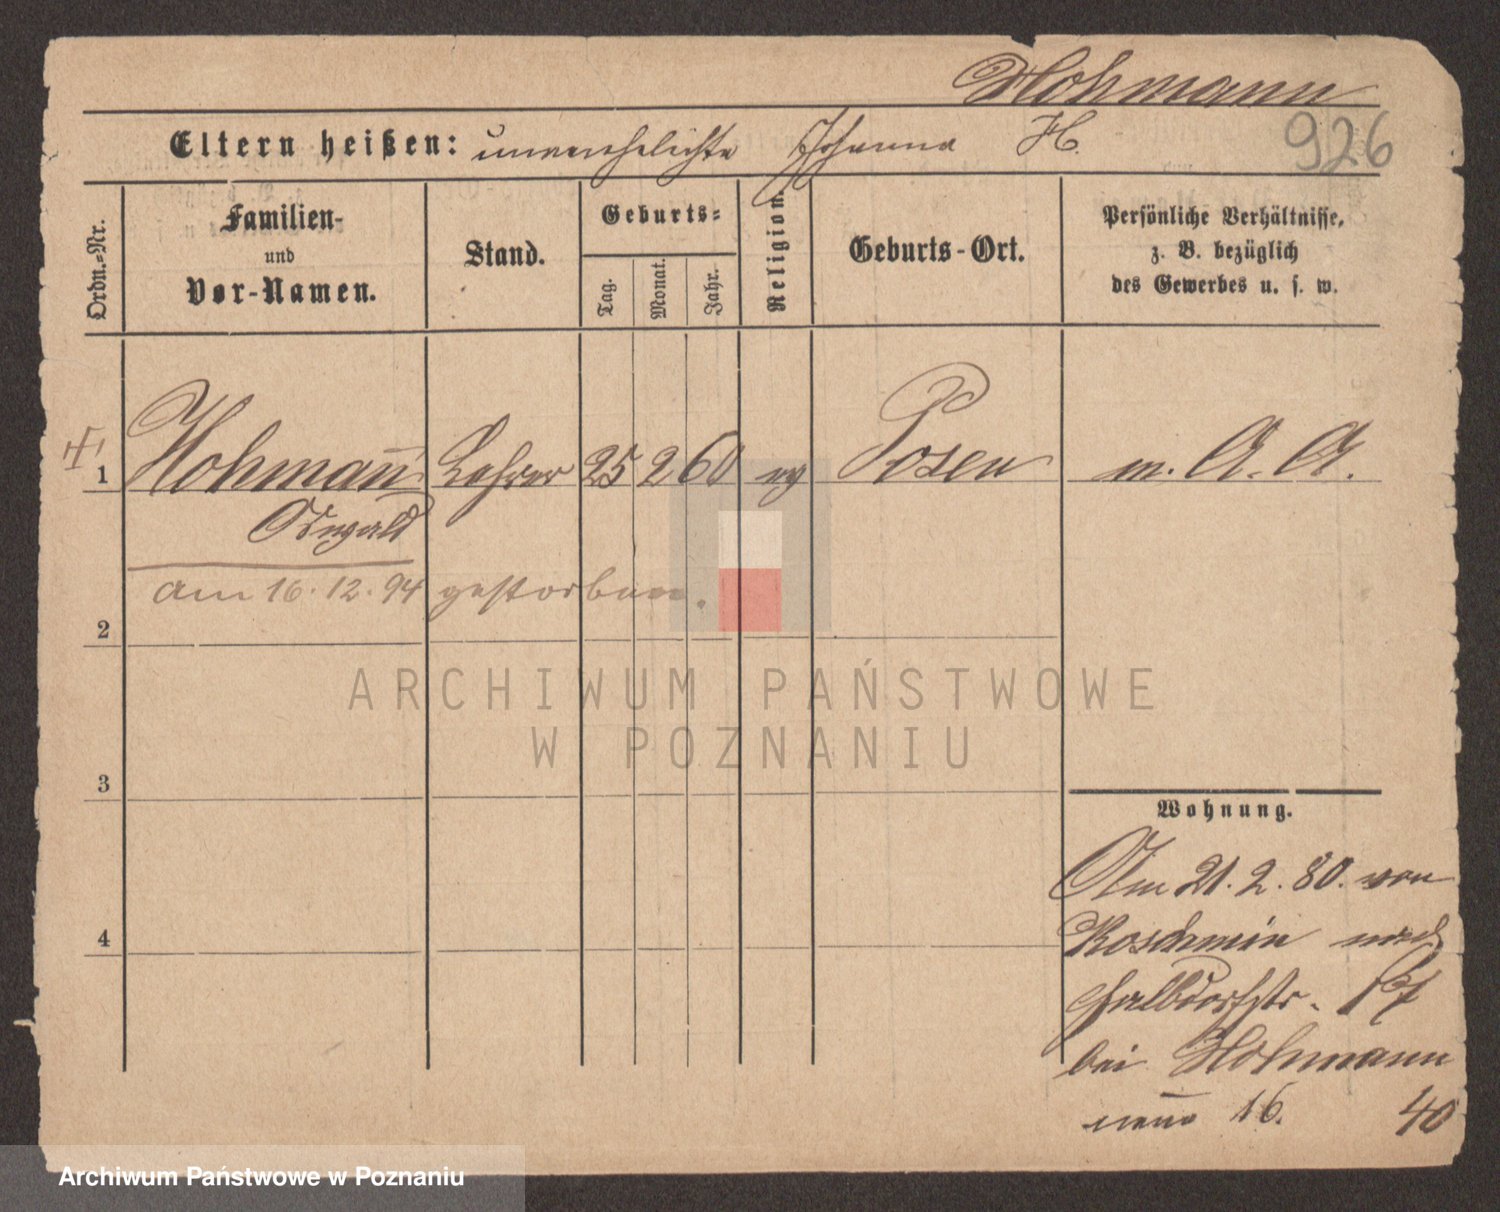 Hohmann
Eltern heißen: unverehelichte Johanna H.
926
Ordn.-Nr.
Familien-
und
Vor-Namen.
Stand.
Geburts-
Tag.
Monat.
Jahr.
Religion.
Geburts-Ort.
Persönliche Verhältnisse,
z. B. bezüglich
des Gewerbes u. s. w.
1 Hohman̄ Lehrer 25 2 60 ev Posen m. A. A.
Oswald
am 16.12.94 gestorben.
2
ARCHIWUM PAŃSTWOWE
W POZNANIU
3
Wohnung.
Am 21.2.80. von
Koschmin nach
Halbdorfstr. 17
bei Hohmann
neue 16. 40
4
Archiwum Państwowe w Poznaniu